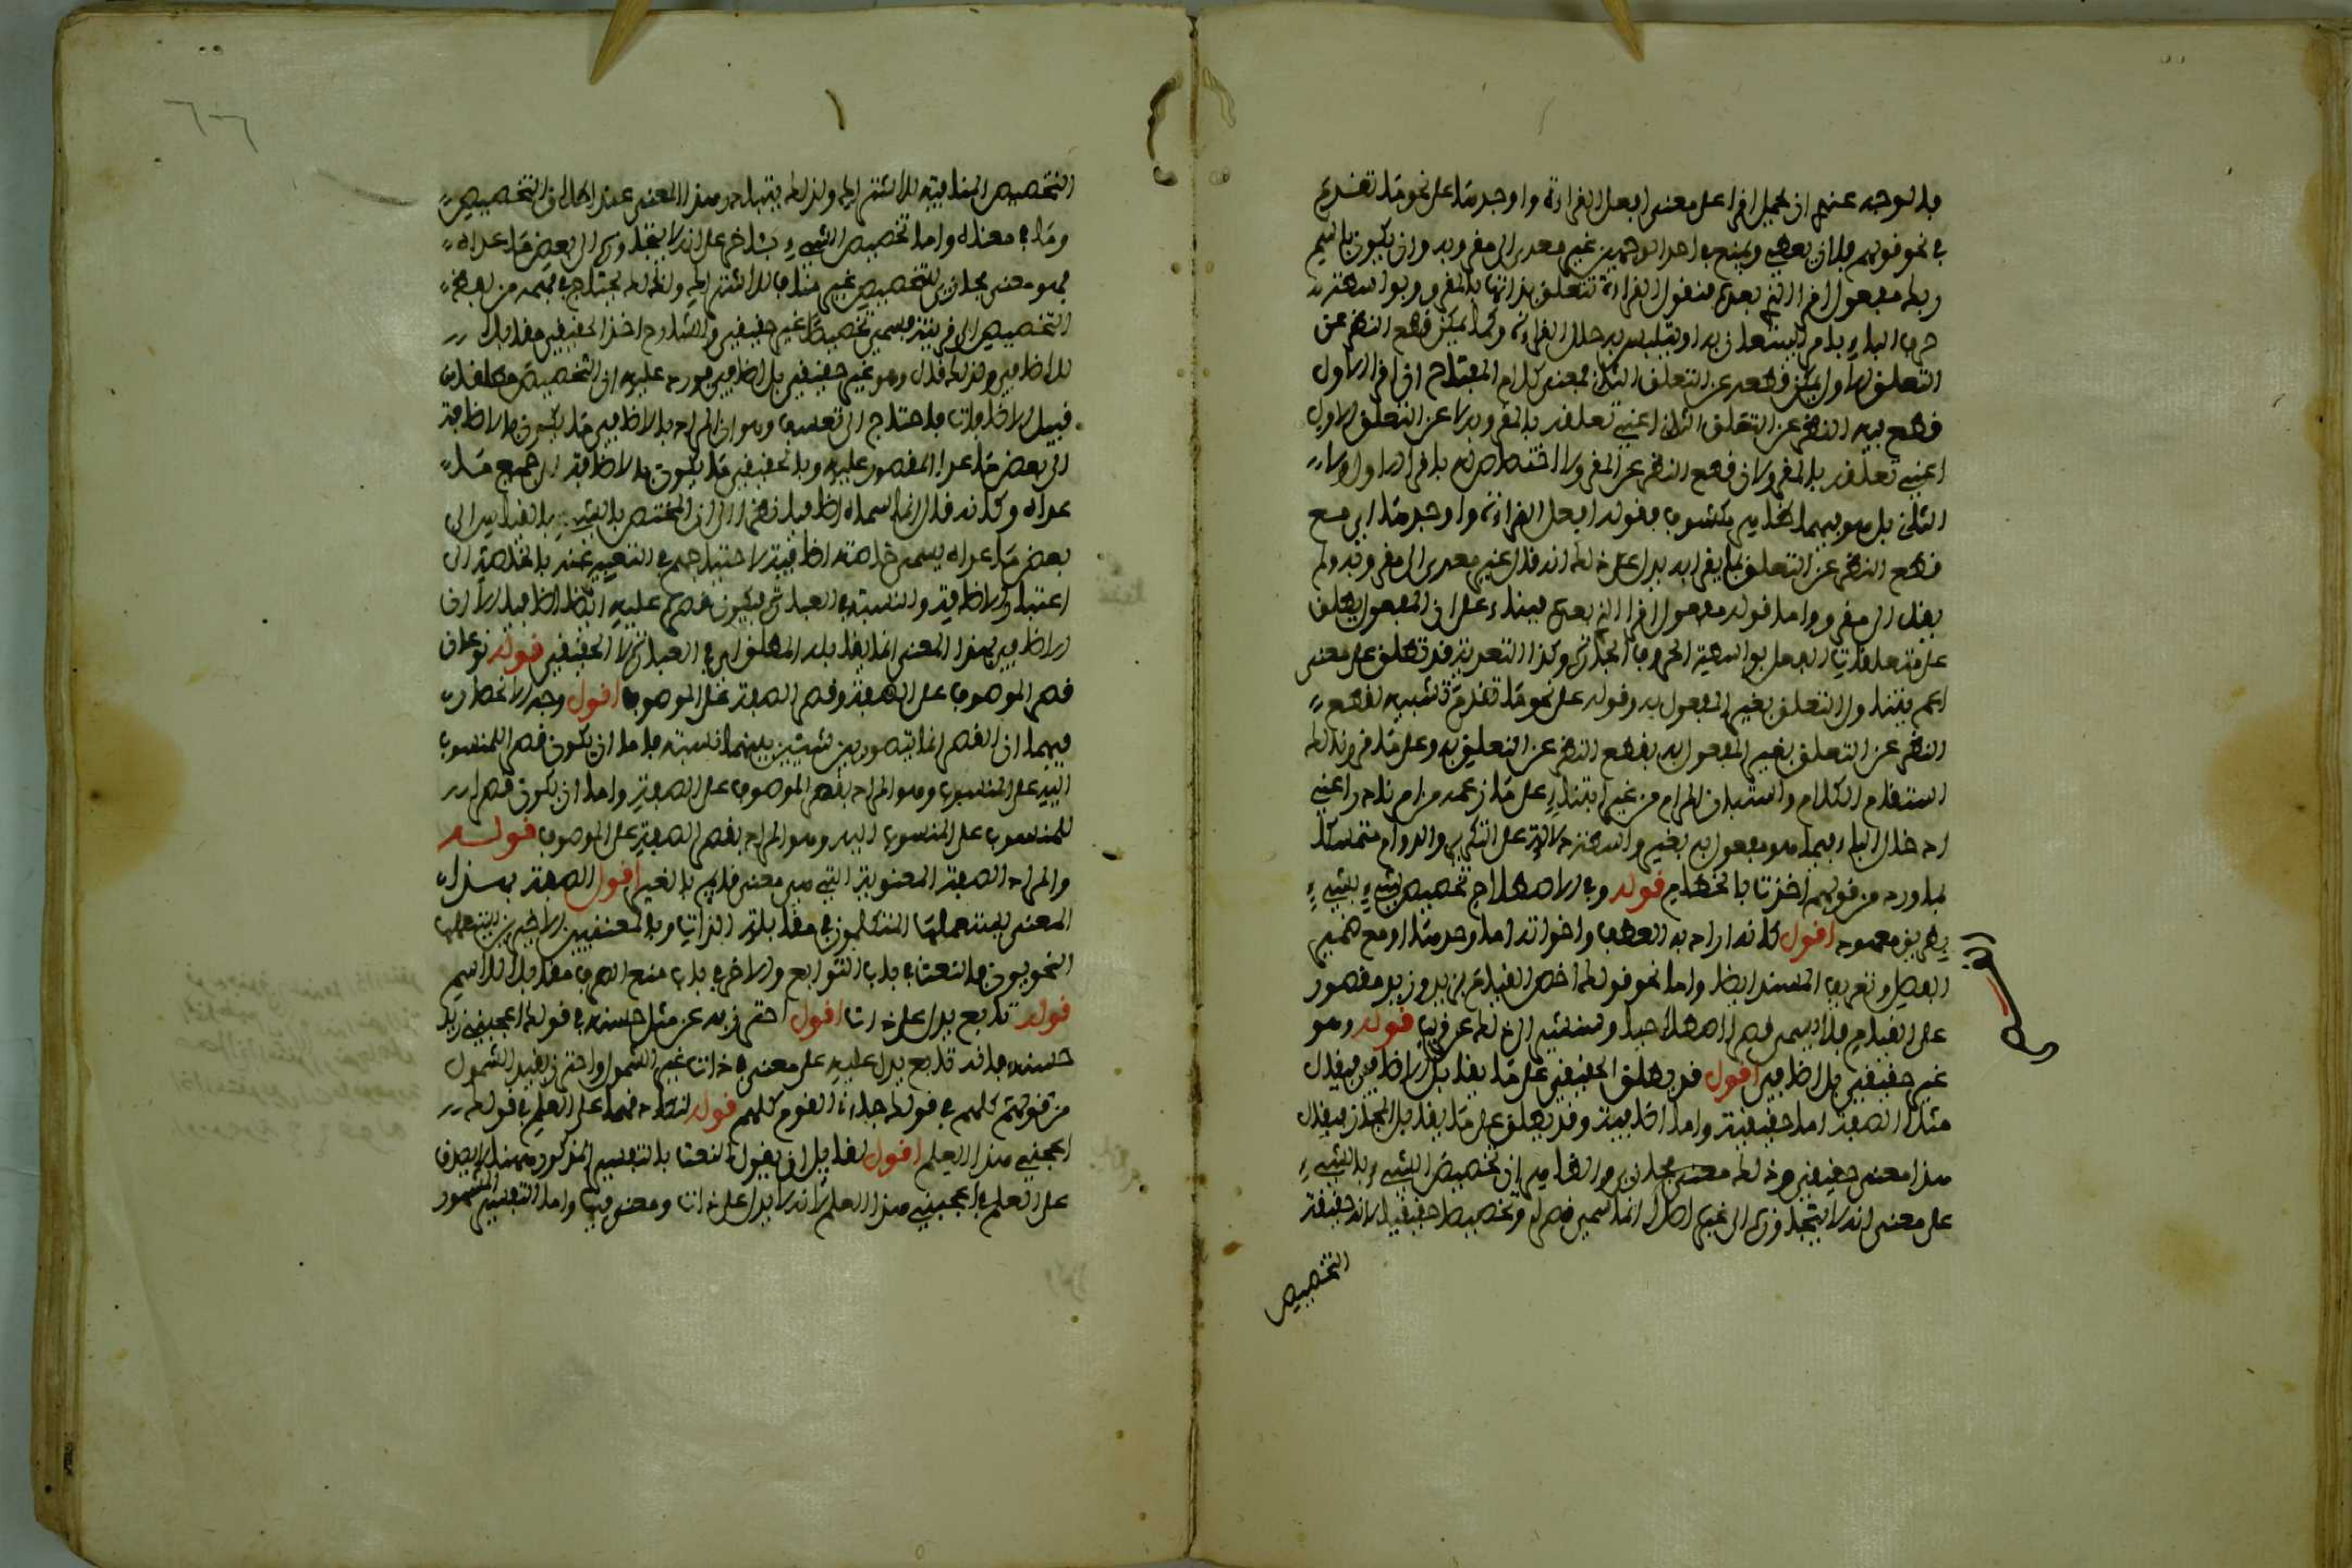 فالوجه عنده ان يحمل اقرا على معنى افعل القراءة واوجدها على نحو ما تقدم
في نحو قولهم فلان يعطي ويمنع في احد الوجهين غير معدى الى مقروء به وان يكون باسم
ربك مفعول اقرا الذي بعده فنقول القراءة تتعلق بذاتها بالمقروء وبواسطة
حرف الباء بامر يستعان به او يتلبس به حال القراءة وكما يمكن قطع النظر عن
التعلق الاول يمكن قطعه عن التعلق الثاني فمعنى كلام المفتاح ان اقرا الاول
قطع فيه النظر عن التعلق الثاني اعني تعلقه بالمقروء به لا عن التعلق الاول
اعني تعلقه بالمقروء لان قطع النظر عن المقروء لا اختصاص له باقرا الاول دون
الثاني بل هو فيهما ظاهر مكشوف فقوله افعل القراءة واوجدها اي مع
قطع النظر عن التعلق بما يقرا به يدل على ذلك انه قال غير معدى الى مقروء به ولم
يقل الى مقروء واما قوله مفعول اقرا الذي بعده فبناء على ان المفعول يطلق
على متعلقات الفعل بواسطة الحروف الجارة وكذا التعدية قد تطلق على معنى
اعم يتناول التعلق بغير المفعول به وقوله على نحو ما تقدم تشبيه لقطع
النظر عن التعلق بغير المفعول به بقطع النظر عن التعليق به وعلى ما قررناه لك
استقام الكلام واستبان المرام من غير ابتناء على ما زعمه من امر نادر اعني
ادخال الباء فيما هو مفعول به بغير واسطة دلالة على التكرير والدوام متمسكا
بما ورد من قولهم اخذت بالخطام قوله وفي الاصطلاح تخصيص شيء بشيء
بطريق معهود اقول كانه اراد به العطف واخواته اما وحدها او مع ضمير
الفصل وتعريف المسند ايضا واما نحو قولك اخص القيام بزيد وزيد مقصور
على القيام فلا يسمى قصرا اصطلاحيا وسنشير الى ذلك عن قريب قوله وهو
غير حقيقي بل اضافي اقول قد يطلق الحقيقي على ما يقابل الاضافي فيقال
مثلا الصفة اما حقيقية واما اضافية وقد يطلق على ما يقابل المجازي فيقال
هذا معنى حقيقي وذلك معنى مجازي والظاهر ان تخصيص الشيء بالشيء
على معنى انه لا يتجاوزه الى غيره اصلا انما سمي قصرا وتخصيصا حقيقيا لانه حقيقة
التخصيص
التخصيص المنافية للاشتراك ولذلك يتبادر هذا المعنى عند اطلاق التخصيص
وما في معناه واما تخصيص الشيء بشاخر على انه لا يتجاوزه الى بعض ما عداه
فهو معنى مجازي للتخصيص غير مناف للاشتراك ولذلك يحتاج في فهمه من لفظ
التخصيص الى قرينة فسمي تخصيصا غير حقيقي والشارح اخذ الحقيقي مقابلا
للاضافي ولذلك قال وهو غير حقيقي بل اضافي فورد عليه ان التخصيص مطلقا من
قبيل الاضافات فاحتاج الى تعسف وهو ان المراد بالاضافي ما يكون بالاضافة
الى بعض ما عدا المقصور عليه وبالحقيقي ما يكون بالاضافة الى جميع ما
عداه وكانه قال انما اسماه اضافيا نظرا الى ان المختص بالشيء بالقياس الى
بعض ما عداه يسمى خاصة اضافية لاحتياجهم في التعبير عنه بالخاصة الى
اعتبار الاضافة والنسبة في العبارة فيكون قصره عليه ايضا اضافيا الا ان
الاضافي بهذا المعنى انما يقابله المطلق اي في العبارة لا الحقيقي قوله نوعان
قصر الموصوف على الصفة وقصر الصفة على الموصوف اقول وجه الانحصار
فيهما ان القصر انما يتصور بين شيئين بينهما نسبة فاما ان يكون قصر المنسوب
اليه على المنسوب وهو المراد بقصر الموصوف على الصفة واما ان يكون قصرا
للمنسوب على المنسوب اليه وهو المراد بقصر الصفة على الموصوف قوله
والمراد الصفة المعنوية التي هي معنى قائم بالغير اقول الصفة بهذا
المعنى يستعملها المتكلمون في مقابلة الذات وبالمعنيين الاخيرين يستعملها
النحويون فالنعت في باب التوابع والاخر في باب منع الصرف مقابلا للاسم
قوله تابع يدل على ذات اقول احترز به عن مثل حسنه في قولك اعجبني زيد
حسنه فانه تابع يدل عليه على معنى في ذات غير الشمول واحترز بقيد الشمول
من قولهم كلهم في قولك جاءني القوم كلهم قوله لتصادقهما على العلم في قولك
اعجبني هذا العلم اقول لقائل ان يقول النعت بالتفسير المذكور هنا لا يصدق
على العلم في اعجبني هذا العلم لانه لا يدل على ذات ومعنى فيها واما التفسير المشهور